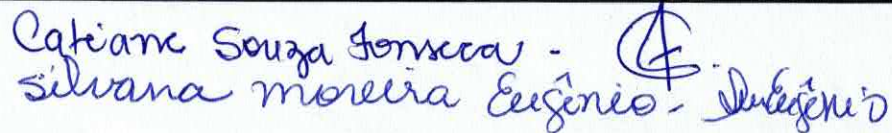 Catiane Souza Fonseca -
Silvana Moreira Eugênio -